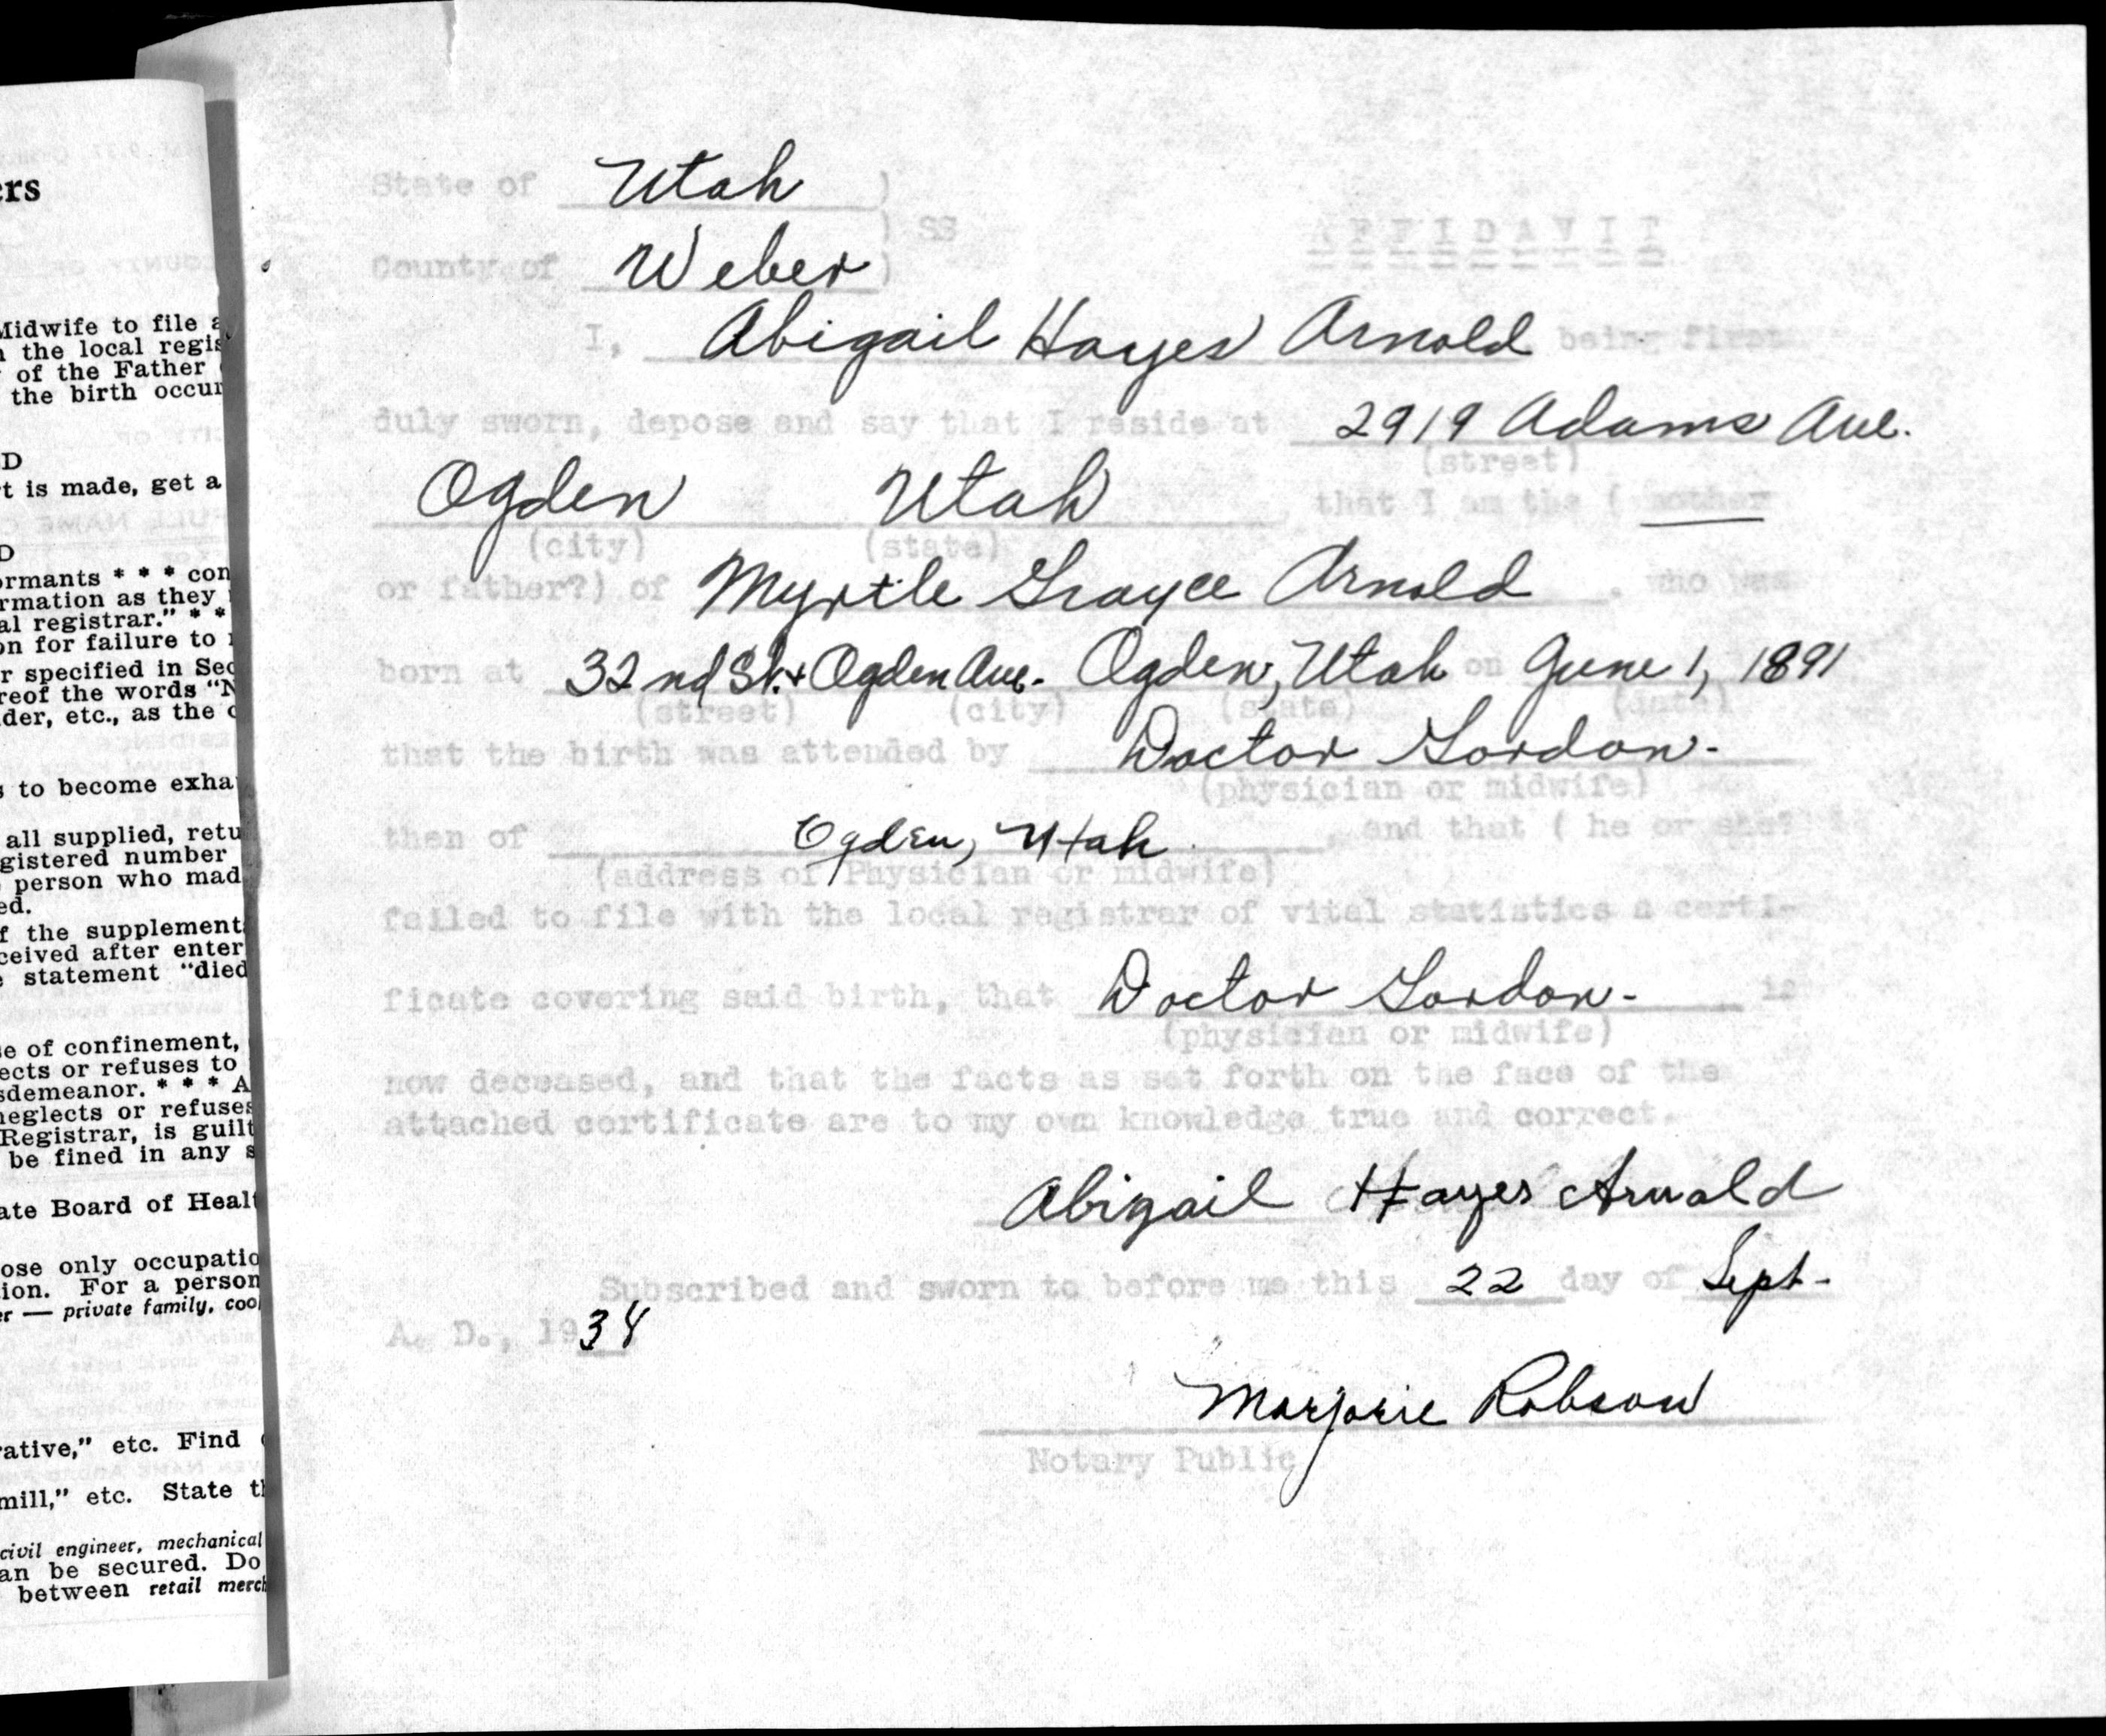 ers
Midwife to file a
n the local regis
of the Father
the birth occur
D
t is made, get a
D
ormants * * * con
rmation as they
al registrar." * *
on for failure to
r specified in Sec
reof the words "N
der, etc., as the c
s to become exha
all supplied, retu
gistered number
person who mad
ed.
f the supplement
ceived after enter
e statement "died
e of confinement,
ects or refuses to
sdemeanor. * * * A
neglects or refuses
Registrar, is guilt
be fined in any s
ate Board of Healt
ose only occupatio
ion. For a person
er — private family, coo
rative," etc. Find
mill," etc. State th
civil engineer, mechanical
an be secured. Do
between retail merch
State of Utah )
) SS
AFFIDAVIT
County of Weber )
I, Abigail Hayes Arnold being first
duly sworn, depose and say that I reside at 2919 Adams Ave.
(street)
Ogden Utah, that I am the ( mother
(city) (state)
or father?) of Myrtle Grayce Arnold, who was
born at 32nd St. + Ogden Ave. Ogden, Utah on June 1, 1891
(street) (city) (state) (date)
that the birth was attended by Doctor Gordon.
(physician or midwife)
then of Ogden, Utah, and that ( he or she?
(address of Physician or midwife)
failed to file with the local registrar of vital statistics a certi-
ficate covering said birth, that Doctor Gordon. is
(physician or midwife)
now deceased, and that the facts as set forth on the face of the
attached certificate are to my own knowledge true and correct.
Abigail Hayes Arnold
Subscribed and sworn to before me this 22 day of Sept.
A. D., 1934
Marjorie Robson
Notary Public